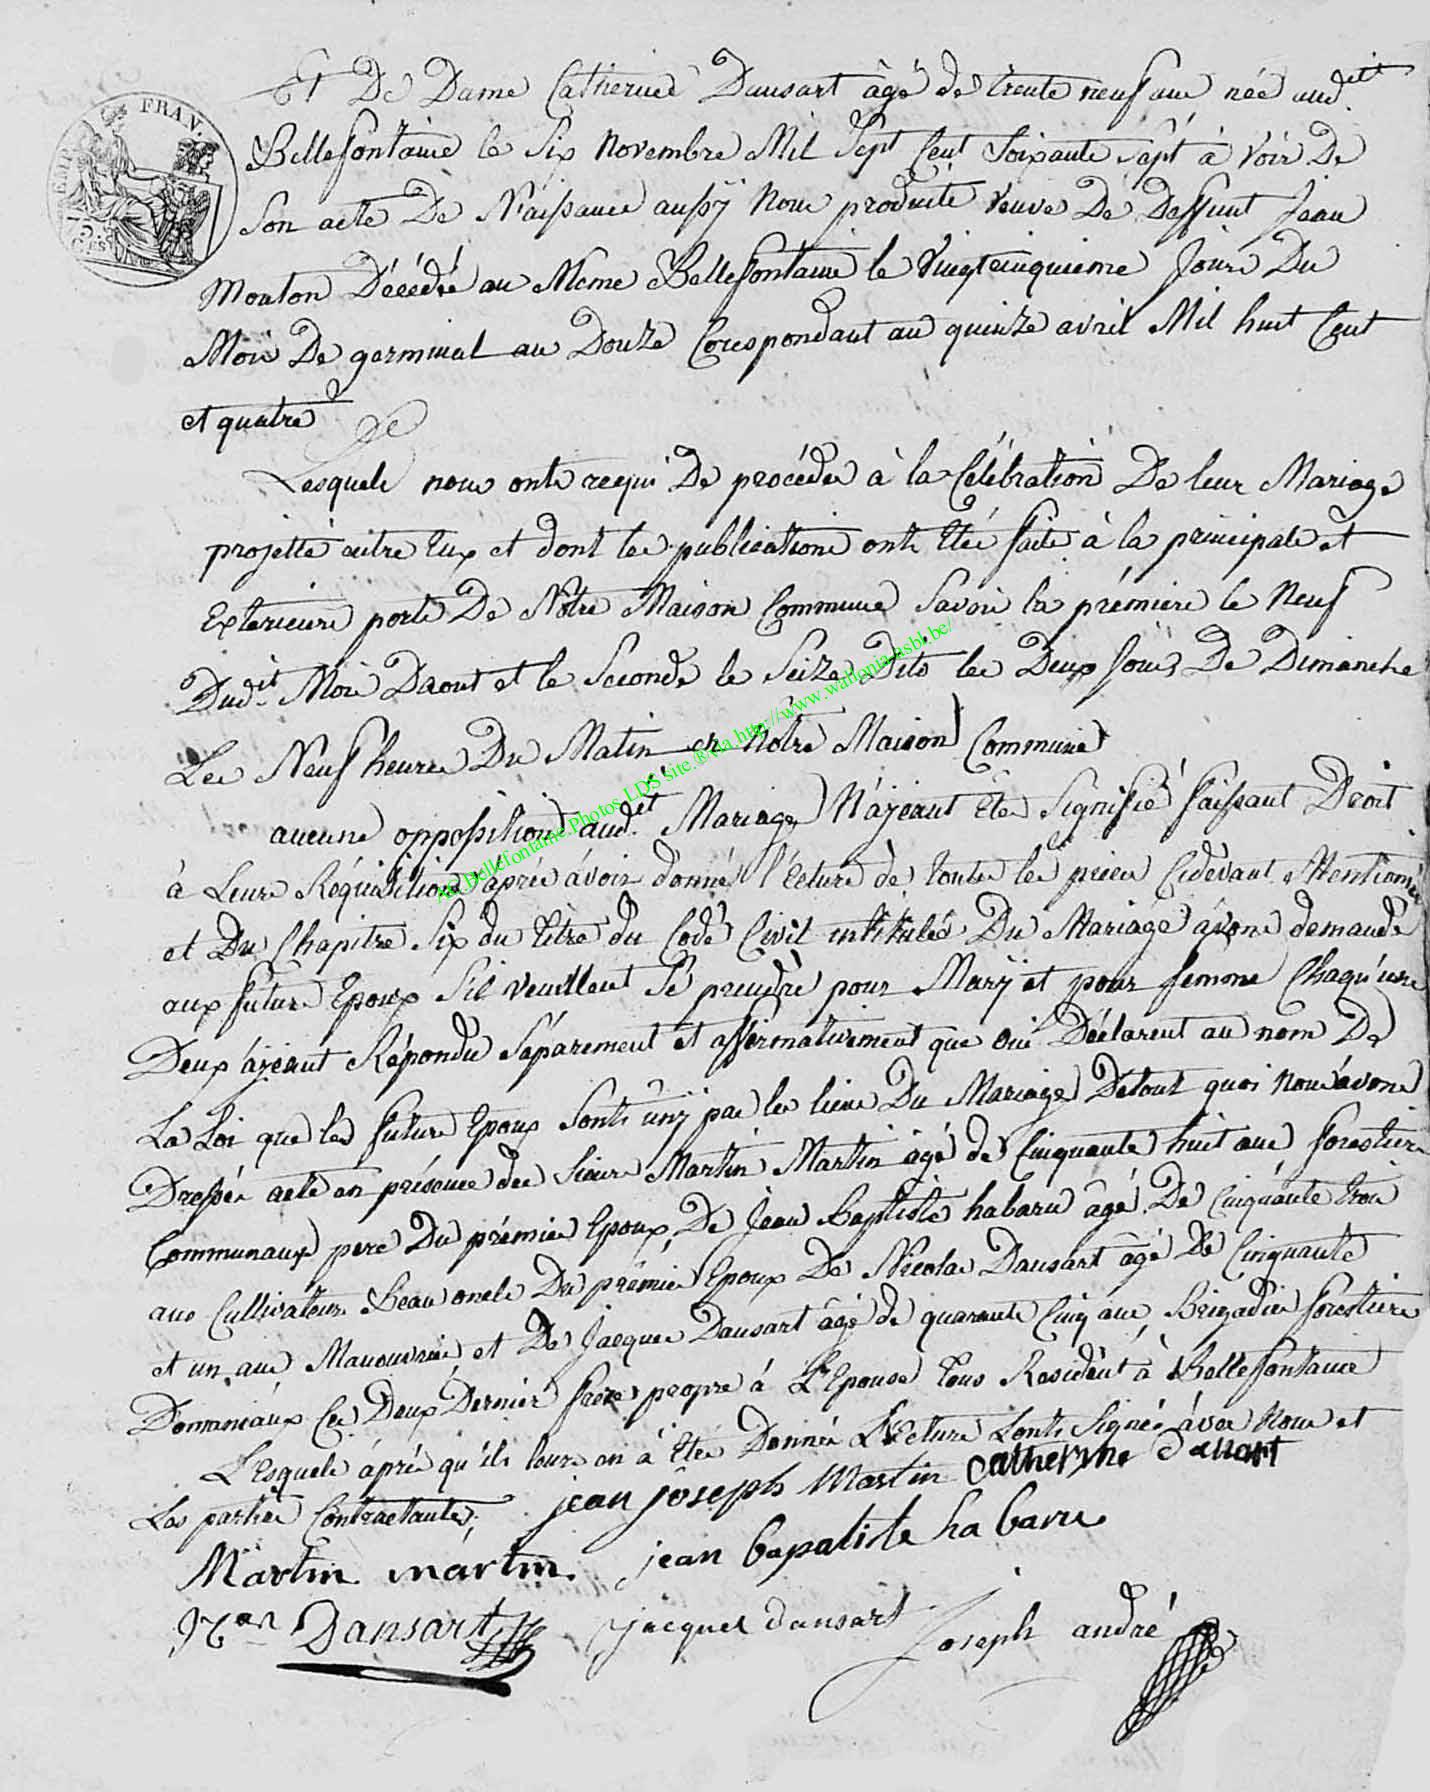 Et De Dame Catherine Dansart âgé de trente neuf ans née aud.it
Bellefontaine le Six Novembre Mil Sept Cent Soixante Sept à voir De
Son acte De Naissance aussy Nous produite veuve De Deffunt Jean
Monton Décédé au Meme Bellefontaine le Vingtcinquieme Jour Du
Mois De germinal an Douze Corespondant au quinze avril Mil huit Cent
et quatre
Lesquels nous onts requi De procéder à la Célébration De leur Mariage
projetté entre Eux et dont les publications onts Etée faite à la principale et
Exterieure porte De Nôtre Maison Commune Savoir la prémiere le Neuf
Dud.it Mois Daout et le Seconde le Seize Dito les Deux Jours De Dimanche
Les Neuf heures Du Matin en Nôtre Maison Commune
aucune opposition aud.it Mariage N'ayeant Etée Signifié faissant Droit
à Leurs Réquisitions après âvoir donné l'Ecture de toutes les pieces Cidevant Mentionnés
et Du Chapitre Six du titre du Code Civil intitulés Du Mariage avons demandé
aux futurs Epoux S'il veuillent Sé prendre pour Mary et pour femme Chaqu'une
Deux ayéant Répondu Séparement et affirmativement que oui Déclarent au nom De
La Loi que les futurs Epoux Sonts uny par les liens Du Mariage Detout quoi Nous âvons
Dressée acte en présence des Sieurs Martin Martin âgé de Cinquante huit ans forestier
Communaux pere Du prémier Epoux, De Jean Baptiste habaru âgé De Cinquante trois
ans Cultivateur Beau oncle Du prémier Epoux De Nicolas Dansart âgé De Cinquante
et un ans Manouvrier et De Jacques Dansart âgé de quarante Cinq ans Brigadier forestier
Domaniaux Ces Deux Dernier frère propre à L'Epouse Tous Résident à Bellefontaine
L'Esquels âprés qu'ils leurs en à Etée Donnée L'Ecture Sonts Signée âvec Nous et
Les parties Contractantes,
jean joseph Martin Catherine Dansart
Martin martin. jean bapatiste habaru
Dansart jacques dansart Joseph andré
FRAN.
EMP.
75 C.es
AC Bellefontaine.Photos LDS site.®via http://www.wallonia-asbl.be/